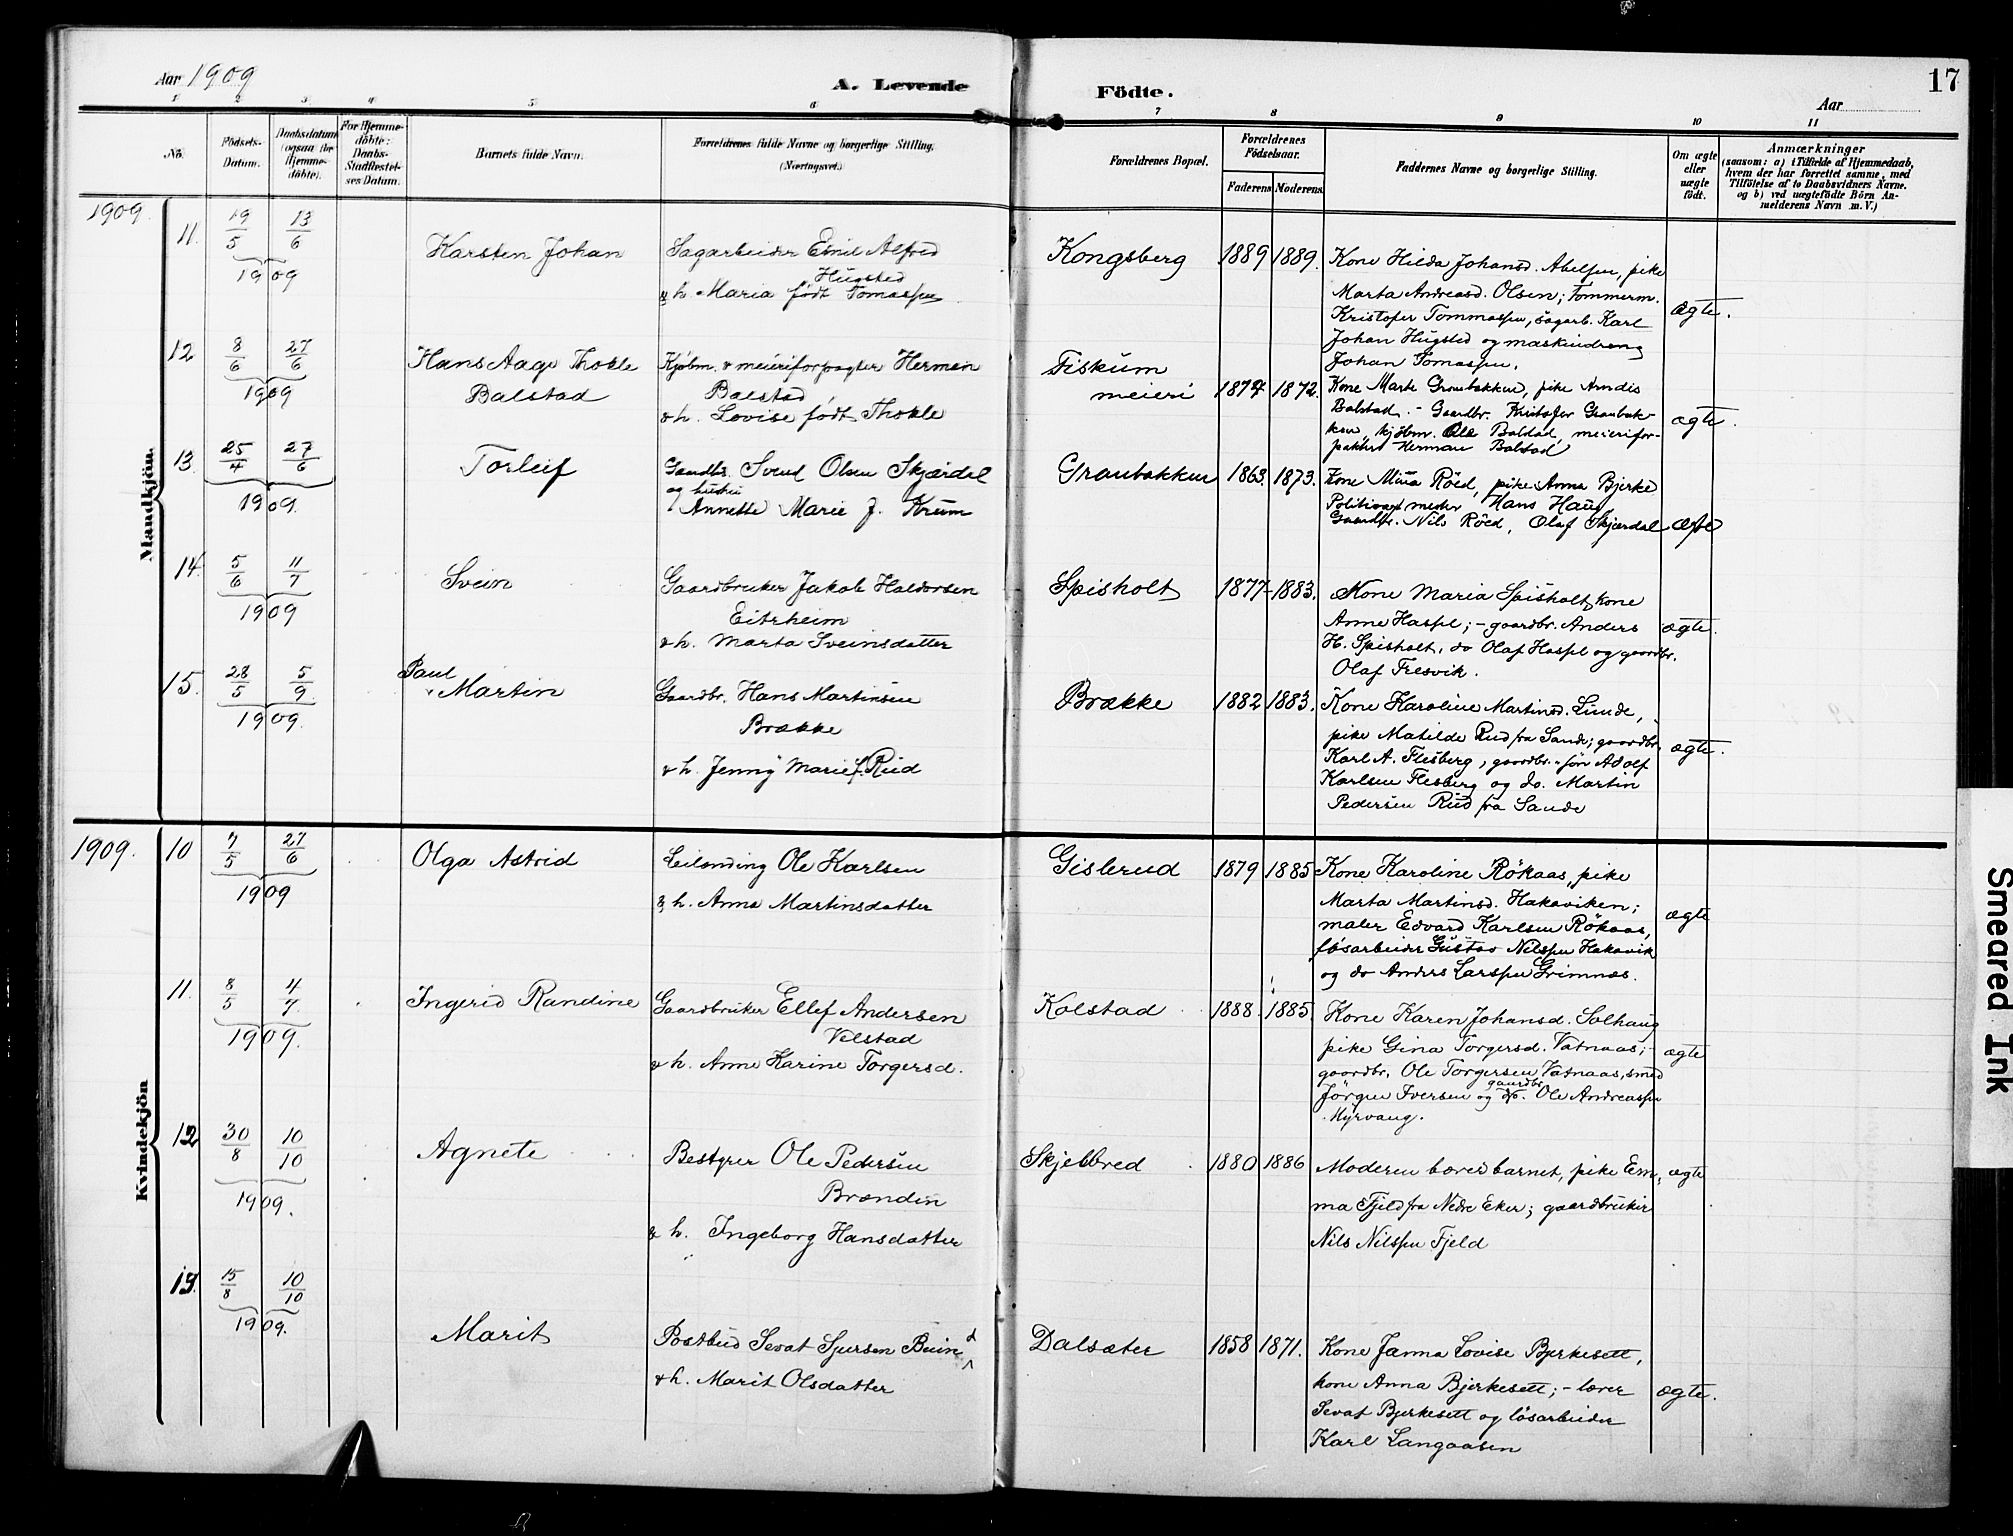 Aar 1909
A. Levende
Födte.
17
Aar
1 2 3 4 5 6 7 8 9 10 11
No.
Födsels-
Datum.
Daabsdatum
(ogsaa for
Hjemme-
döbte).
For Hjemme-
döbte:
Daabs-
Stadfæstel-
ses Datum.
Barnets fulde Navn.
Forældrenes fulde Navne og borgerlige Stilling.
(Næringsvei.)
Forældrenes Bopæl.
Forældrenes
Födselsaar.
Faderens Moderens.
Faddernes Navne og borgerlige Stilling.
Om ægte
eller
uægte
födt.
Anmærkninger
(saasom: a) i Tilfælde af Hjemmedaab,
hvem der har forrettet samme, med
Tilföielse af to Daabsvidners Navne.
og b) ved uægtefödte Börn An-
melderens Navn m. V.)
Mandkjön.
1909.
11. 19/5 13/6
1909
Karsten Johan
Sagarbeider Emil Alfred
Hugsted
& h. Maria født Tomassen
Kongsberg
1889 1889.
Kone Hilda Johansd. Abelsen, pike
Marta Andreasd. Olsen; Tømmerm.
Kristofer Tommassen, sagarb. Karl
Johan Hugsted og maskindreng
Johan Tomassen.
ægte.
12 8/6 27/6
1909
Hans Aage Thokle
Balstad
Kjøbm. & meieriforpagter Herman
Balstad
& h. Lovise født Thokle
Fiskum
meieri
1874 1872.
Kone Marte Granbakken, pike Arndis
Balstad. - Gaardbr. Kristofer Granbak-
ken, kjøbm. Ole Balstad, meierifor-
pakter Herman Balstad
ægte.
13. 25/4 27/6
1909.
Torleif
Gaardbr. Svend Olsen Skjærdal
og hustru
Annette Marie J. Krum
Granbakken
1863. 1873.
Kone Mina Röed, pike Anna Bjerke
Politivagtmester Hans Haug
Gaardbr. Nils Röed, Olaf Skjærdal
ægte
14. 5/6 11/7
1909
Svein
Gaardbruker Jakob Haldorsen
Eitrheim
& h. Marta Sveinsdatter
Spisholt
1877- 1883.
Kone Maria Spisholt, kone
Anne Haspl; - gaardbr. Anders
H. Spisholt, do Olaf Haspl og gaardbr.
Olaf Tresvik.
ægte.
15. 28/5 5/9
1909.
Paul
Martin
Gaardbr. Hans Martinsen
Brække
& h. Jenny Marie f. Rud
Brække
1882 1883.
Kone Karoline Martinsd. Lunde,
pike Matilde Rud fra Sande; gaardbr.
Karl A. Flesberg, gaardbr.-søn Adolf
Karlsen Flesberg og do. Martin
Pedersen Rud fra Sande
ægte.
Kvindekjön
1909.
10 7/5 27/6
1909
Olga Astrid
Leilending Ole Karlsen
& h. Anna Martinsdatter
Gislerud
1879 1885
Kone Karoline Rökaas, pike
Marta Martinsd. Hakaviken;
maler Edvard Karlsen Rökaas,
løsarbeider Gustav Nilssen Hakavik
og do Anders Larssen Grimnæs.
ægte
11. 8/5 4/7.
1909.
Ingerid Randine
Gaardbruker Ellef Andersen
Velstad
& h. Anne Karine Torgersd.
Kolstad
1888. 1885.
Kone Karen Johansd. Solhaug
pike Gina Torgersd. Vatnaas; -
gaardbr. Ole Torgersen Vatnaas, smed
Jörgen Iversen og gaardbr. Ole Andreassen
Myrvang.
ægte
12 30/8 10/10
1909.
Agnete
Bestyrer Ole Pedersen
Brænden
& h. Ingeborg Hansdatter
Skjelbred
1880 1886
Moderen bærer barnet, pike Em-
ma Fjeld fra Nedre Eker; gaardbruker
Nils Nilssen Fjeld
ægte
13. 15/8 10/10
1909.
Marit
Postbud Sevat Sjursen Bein
& h. Marit Olsdatter
Dalsæter
1858 1871.
Kone Janna Lovise Bjerkesett,
kone Anna Bjerkesett; - lærer
Sevat Bjerkesett og løsarbeider
Karl Langaasen
ægte.
Smeared Ink